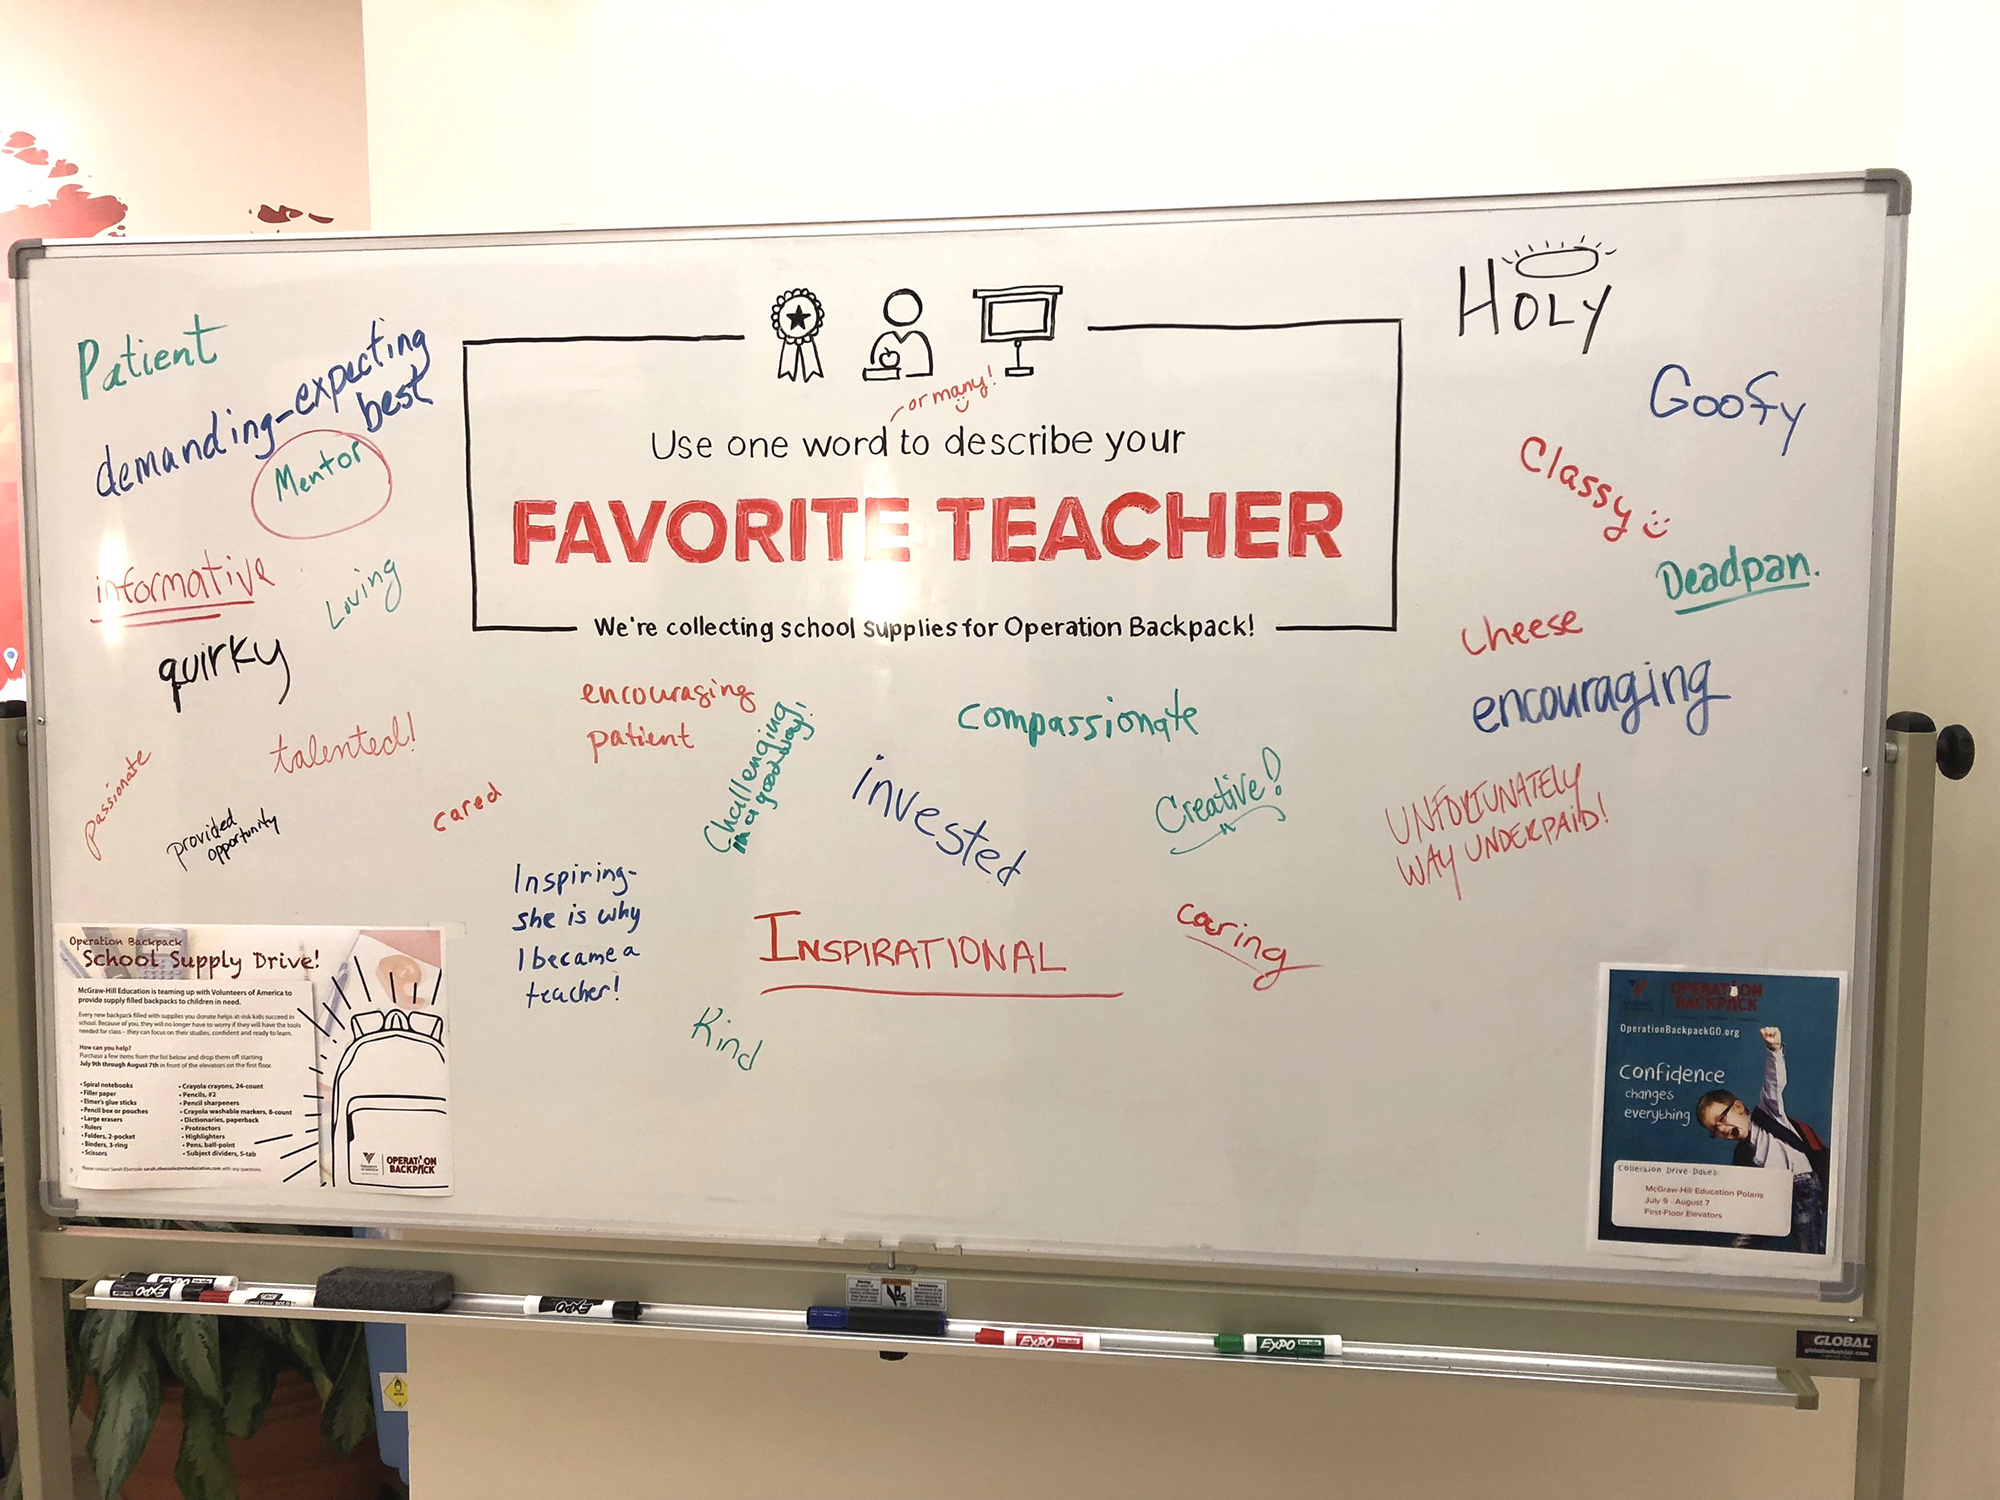 Patient
demanding-expecting
best
Mentor
informative
Loving
quirky
talented!
passionate
provided
opportunity
cared
or many!
Use one word to describe your
FAVORITE TEACHER
We're collecting school supplies for Operation Backpack!
encouraging
patient
Challenging
in a good way!
compassionate
invested
Creative!
Inspiring-
she is why
I became a
teacher!
INSPIRATIONAL
caring
Kind
HOLY
Goofy
Classy
Deadpan.
cheese
encouraging
UNFORTUNATELY
WAY UNDERPAID!
Operation Backpack
School Supply Drive!
McGraw-Hill Education is teaming up with Volunteers of America to
provide supply filled backpacks to children in need.
Every new backpack filled with supplies you donate helps at-risk kids succeed in
school. Because of you, they will no longer have to worry if they will have the tools
needed for class – they can focus on their studies, confident and ready to learn.
How can you help?
Purchase a few items from the list below and drop them off starting
July 9th through August 7th in front of the elevators on the first floor.
• Spiral notebooks
• Filler paper
• Elmer's glue sticks
• Pencil box or pouches
• Large erasers
• Rulers
• Folders, 2-pocket
• Binders, 3-ring
• Scissors
• Crayola crayons, 24-count
• Pencils, #2
• Pencil sharpeners
• Crayola washable markers, 8-count
• Dictionaries, paperback
• Protractors
• Highlighters
• Pens, ball-point
• Subject dividers, 5-tab
Please contact Sarah Ebersole sarah.ebersole@mheducation.com with any questions.
OPERATION
BACKPACK
OPERATION
BACKPACK
OperationBackpackGO.org
Confidence
changes
everything
Collection Drive Dates:
McGraw-Hill Education Polaris
July 9 - August 7
First-Floor Elevators
EXPO
EXPO
EXPO
EXPO
EXPO
CAUTION
GLOBAL